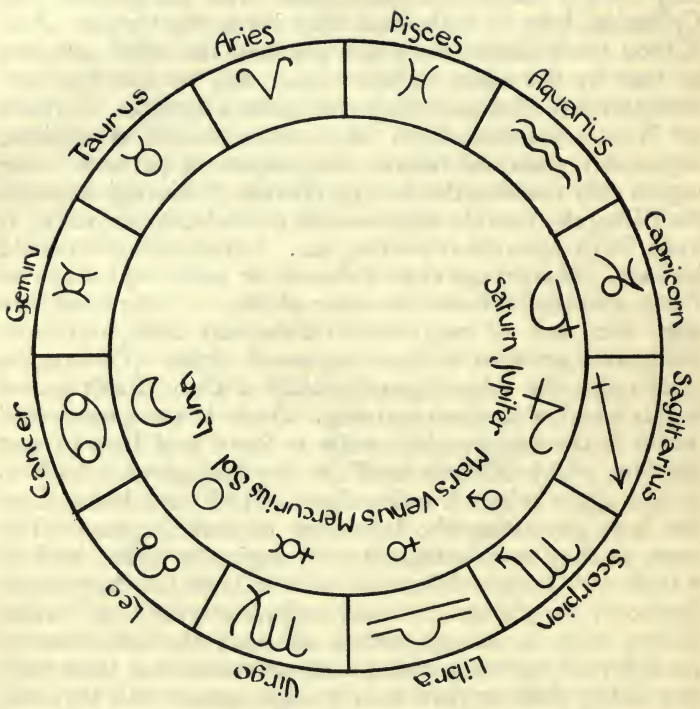 Pisces
Aquarius
Capricorn
Sagittarius
Scorpion
Libra
Virgo
Leo
Cancer
Gemini
Taurus
Aries
Saturn
Jupiter
Mars
Venus
Mercurius
Sol
Luna